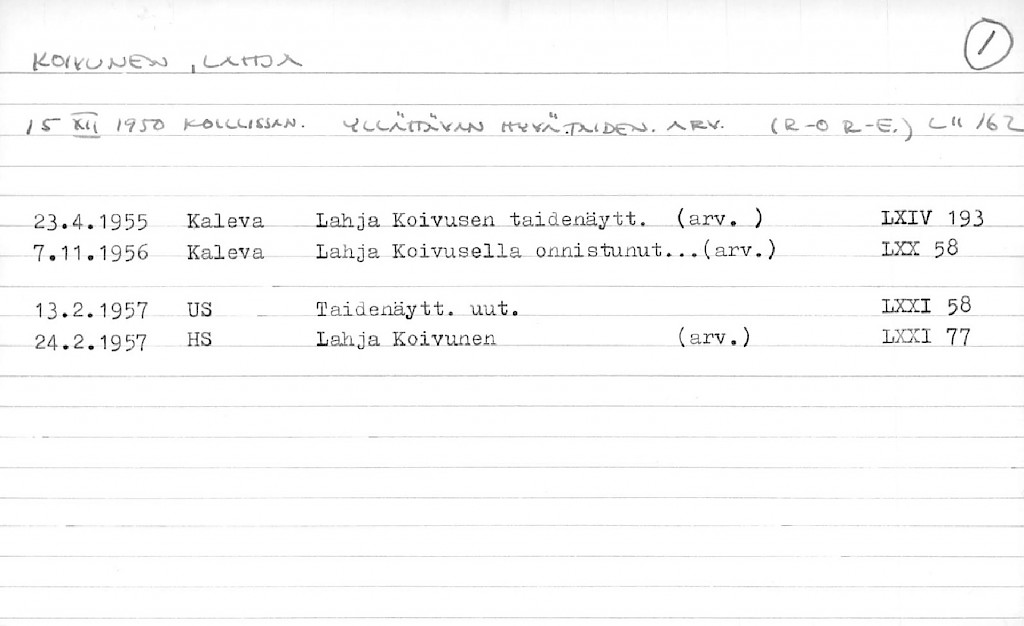 KOIVUNEN, LAHJA 1
15 XII 1950 KOILLISSAN. YLLÄTTÄVÄN HYVÄ TAIDEN. ARV. (R-O R-E.) LII 162
23.4.1955 Kaleva Lahja Koivusen taidenäytt. (arv. ) LXIV 193
7.11.1956 Kaleva Lahja Koivusella onnistunut...(arv.) LXX 58
13.2.1957 US Taidenäytt. uut. LXXI 58
24.2.1957 HS Lahja Koivunen (arv.) LXXI 77